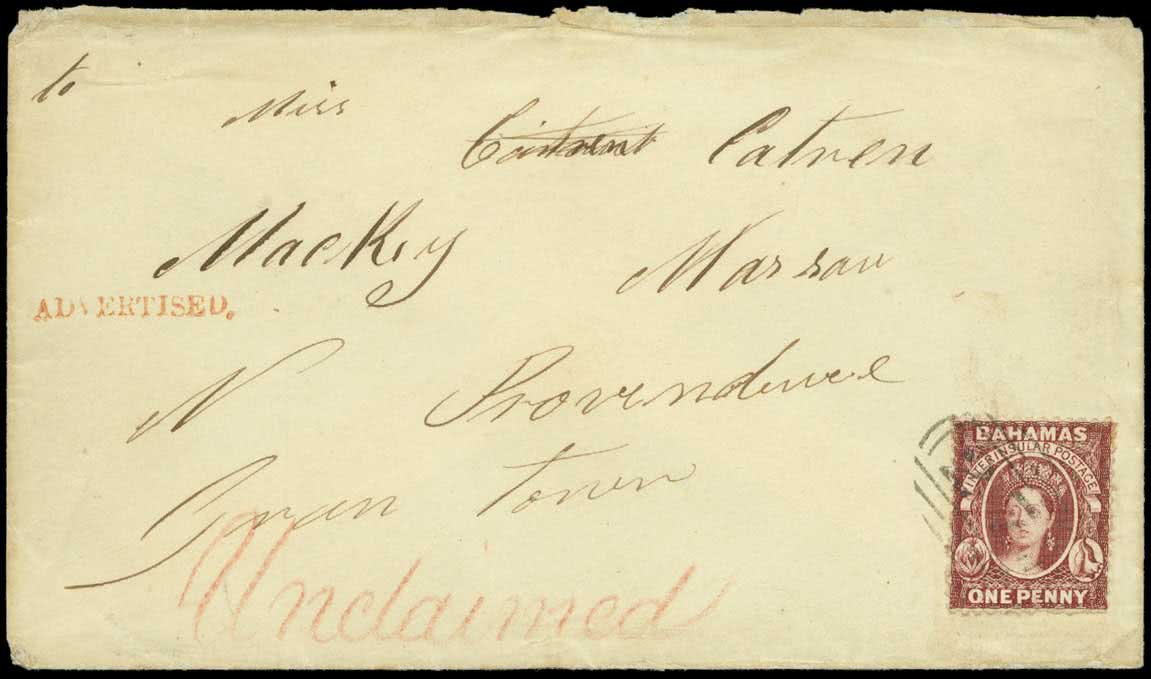 to
Miss Catren
Mackey Nassau
ADVERTISED.
N Provendence
Gran Town
Unclaimed
BAHAMAS
INTERINSULAR POSTAGE
ONE PENNY